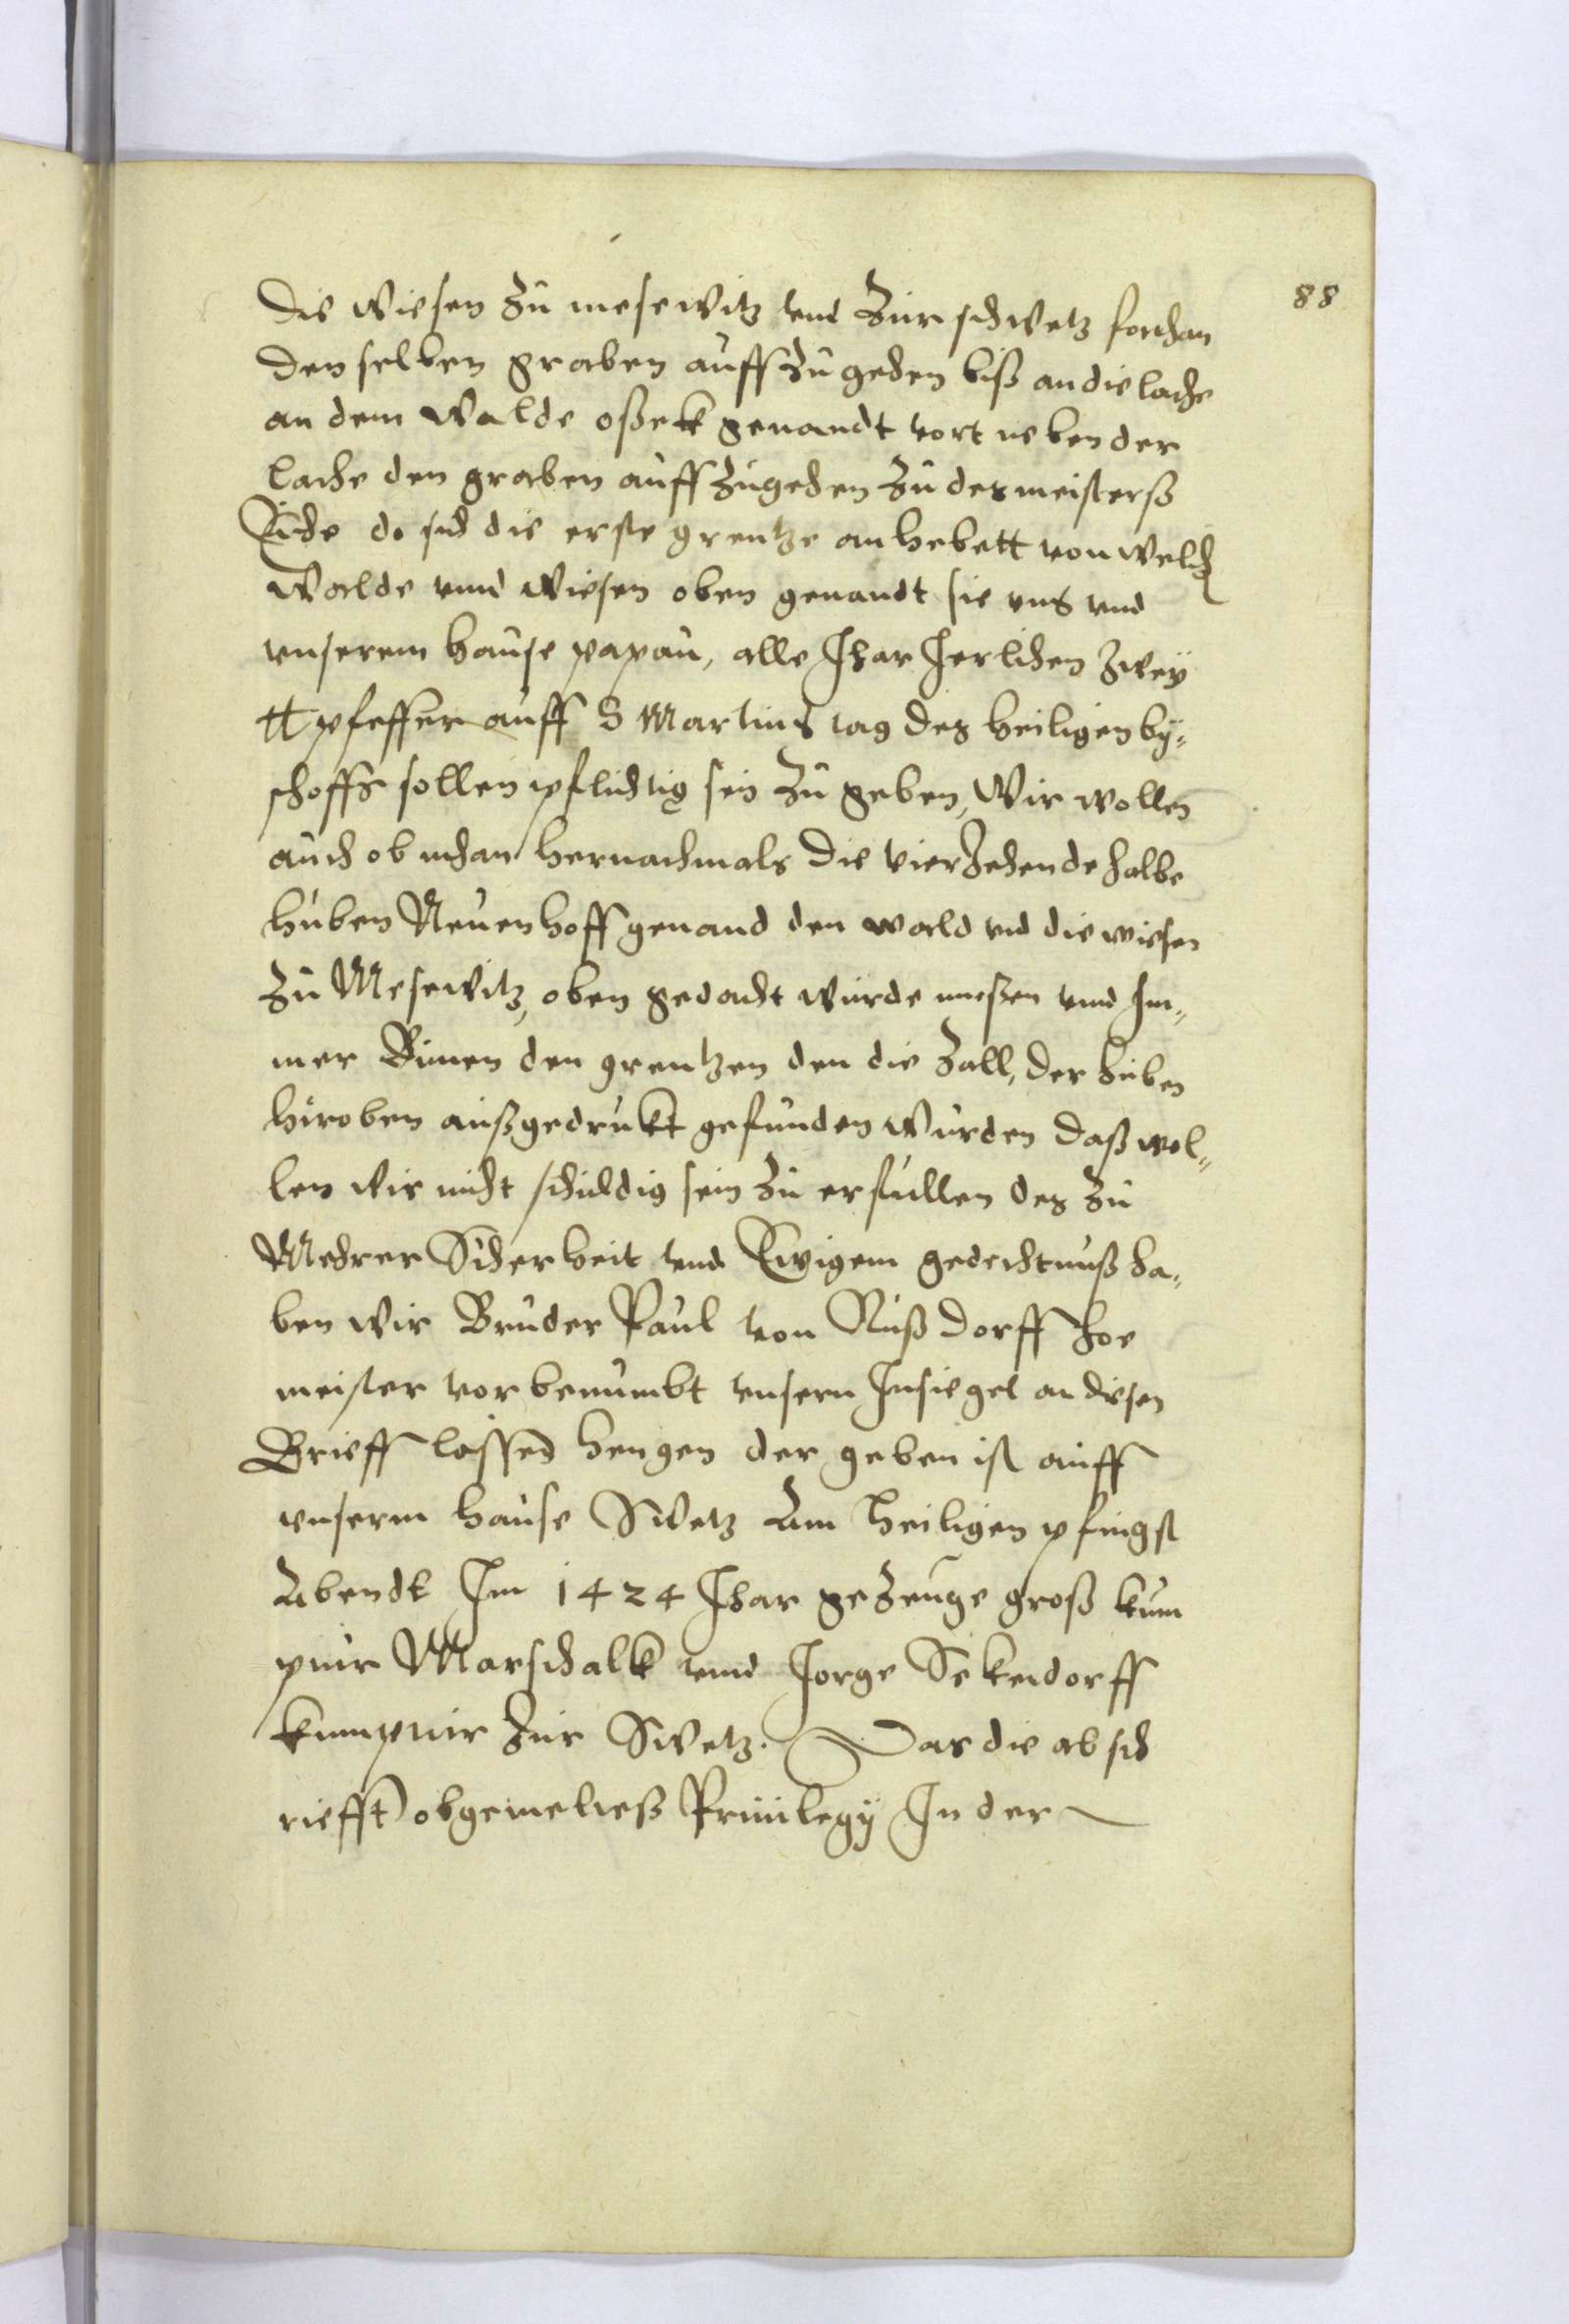 88
Die Wiesen zu mesewitz vnd zur schwetz forthan
denselben graben auff zu gehen biß an die lache
an dem Walde oßek genandt vort neben der
lache den graben auffzugehen zu des meisterß
Eiche do sich die erste grentze anhebett von welch
Walde vnnd Wiesen oben genandt sie vns vnd
vnserem hause papau, alle Jhar Jerlichen zwey
℔ pfeffer auff S Martins tag des heiligen by=
schoffs sollen pflichtig sein zu geben, Wir wollen
auch ob mhan hernachmals die vierzehende halbe
huben Neuenhoff genand den wald vnd die wiesen
zu Mesewitz, oben gedacht wurde meßen vnnd Im=
mer Binnen den grentzen den die zall, der huben
hiroben außgedrukt gefunden wurden daß wol=
len wir nicht schuldig sein zu erfullen des zu
Mehrer Sicherheit vnd Ewigem gedechtnuß ha=
ben wir Bruder Paul von Rußdorff hoe
meister vorbenumbt vnsern Insiegel an diesen
Brieff lassen hengen der geben ist auff
vnserm hause Swetz Am heiligen pfingst
Abendt Im 1424 Jhar gezeuge groß kum
ptur Marschalk vnnd Jorge Sekendorff
kumptur zur Swetz. Das die absch
riefft obgemeltes Priuilegij In der